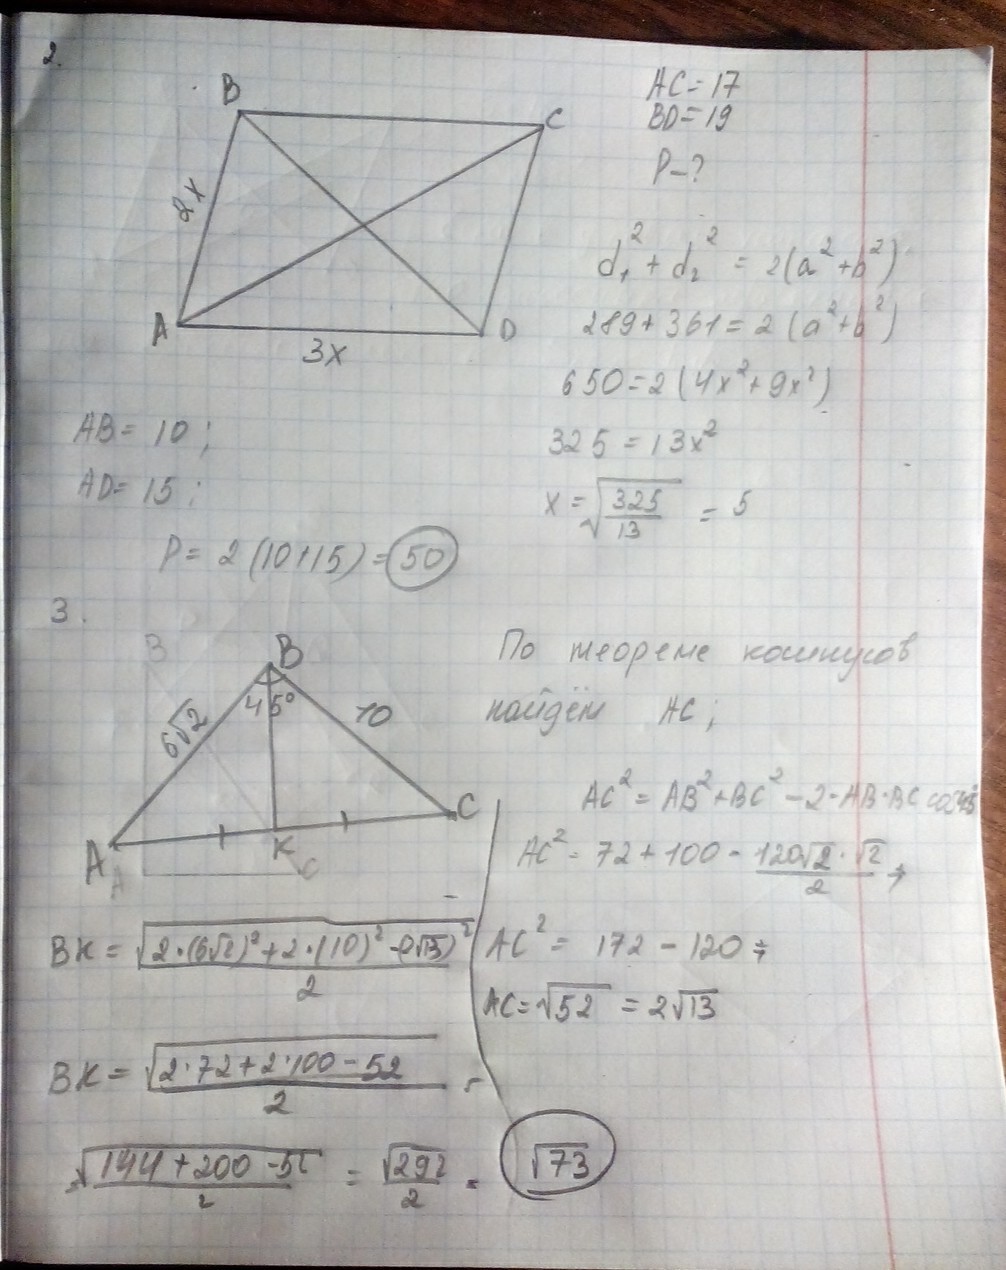 2.
B
C
2x
A
D
3x
AC = 17
BD = 19
P - ?
d₁² + d₂² = 2(a² + b²)
289 + 361 = 2(a² + b²)
650 = 2(4x² + 9x²)
325 = 13x²
x = √(325/13) = 5
AB = 10;
AD = 15;
P = 2(10 + 15) = 50
3.
B
B
6√2
45°
10
A
K
C
A
C
По теореме косинусов
найдём AC;
AC² = AB² + BC² - 2·AB·BC cos45
AC² = 72 + 100 - 120√2·√2/2
AC² = 172 - 120
AC = √52 = 2√13
BK = √(2·(6√2)² + 2·(10)² - (2√13)²)/2
BK = √(2·72 + 2·100 - 52)/2 =
= √(144 + 200 - 52)/2 = √292/2 = √73